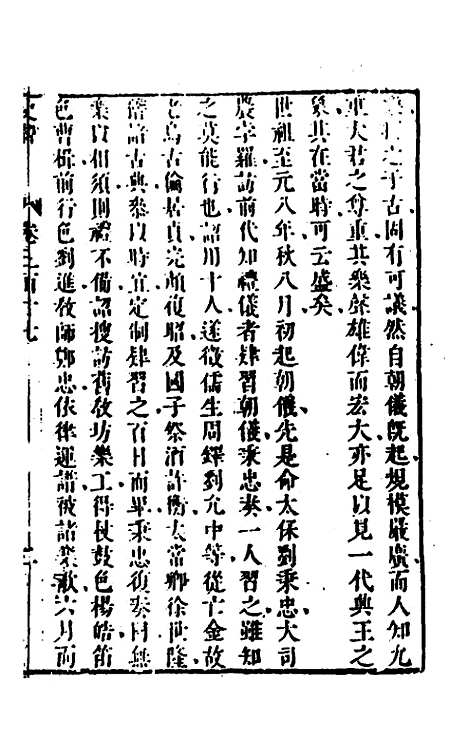 之于古固有可議然自朝儀旣起規模嚴廣而人知九
重大君之尊重其樂聲雄偉而宏大亦足以見一代興王之
象其在當時可云盛矣
世祖至元八年秋八月初起朝儀先是命太保劉秉忠大司
農孛羅訪前代知禮儀者肄習朝儀秉忠奏一人習之雖知
之莫能行也詔用十人遂徵儒生周鐸劉允中等從亡金故
老烏古倫居貞完顏復昭及國子祭酒許衡太常卿徐世隆
諸古典參以時宜定制肄習之百日而畢秉忠復奏曰無
樂以相須則禮不備詔搜訪舊敎坊樂工得杖鼓色楊皓笛
色曹楫前行色劉進敎師鄭忠依律運譜被諸樂歌六月而